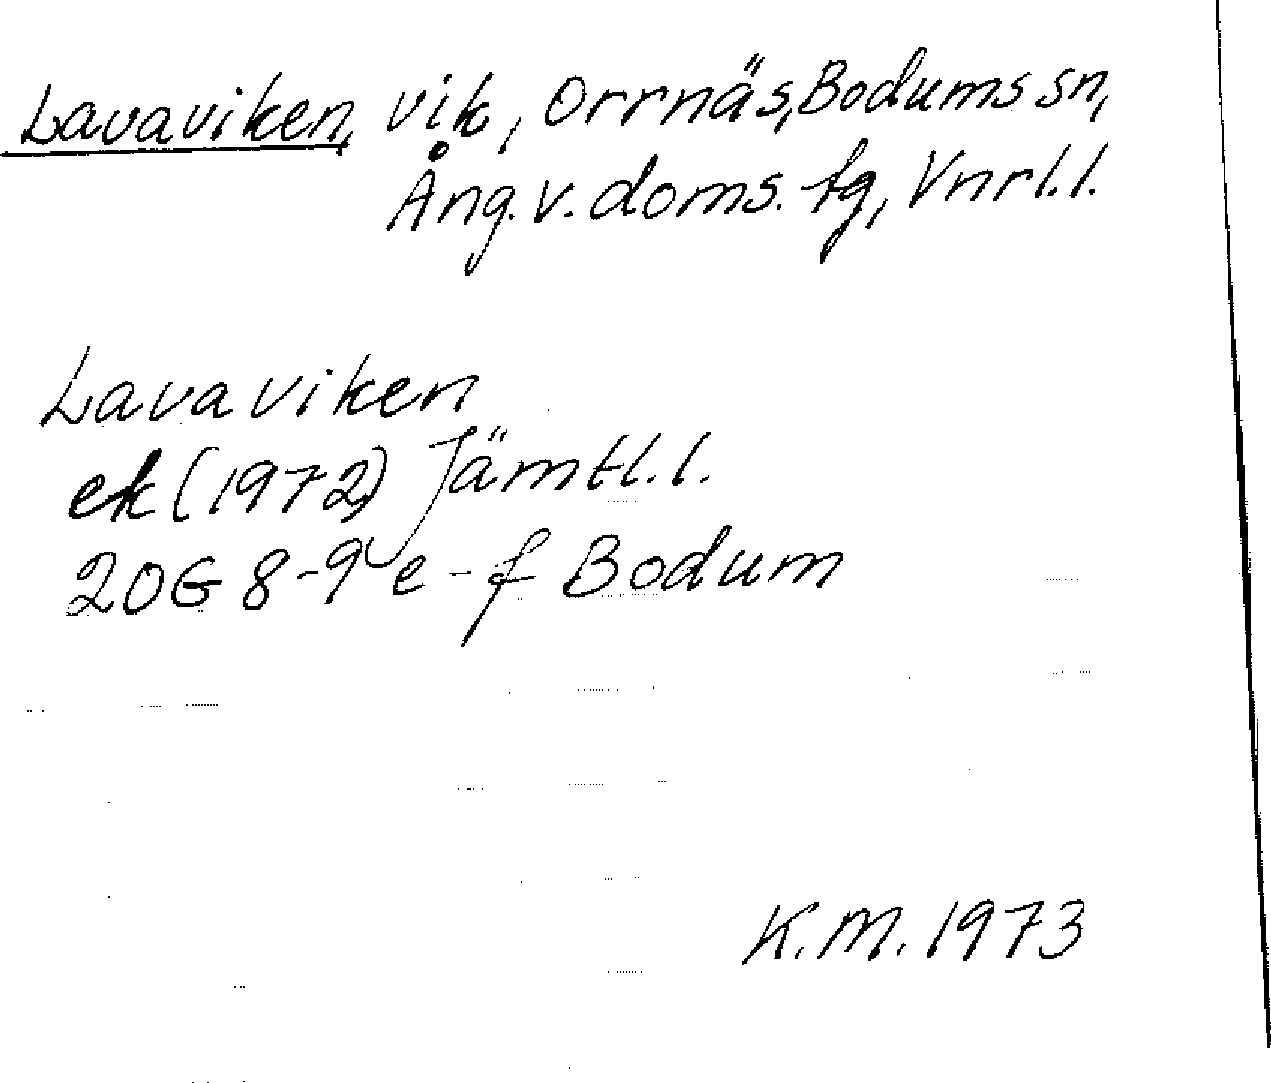 Lavaviken, vik, Orrnäs, Bodums sn,
Ång. v. doms. tg, Vnrl. l.
Lavaviken
ek (1972) Jämtl. l.
20G 8-9 e-f Bodum
K.M. 1973